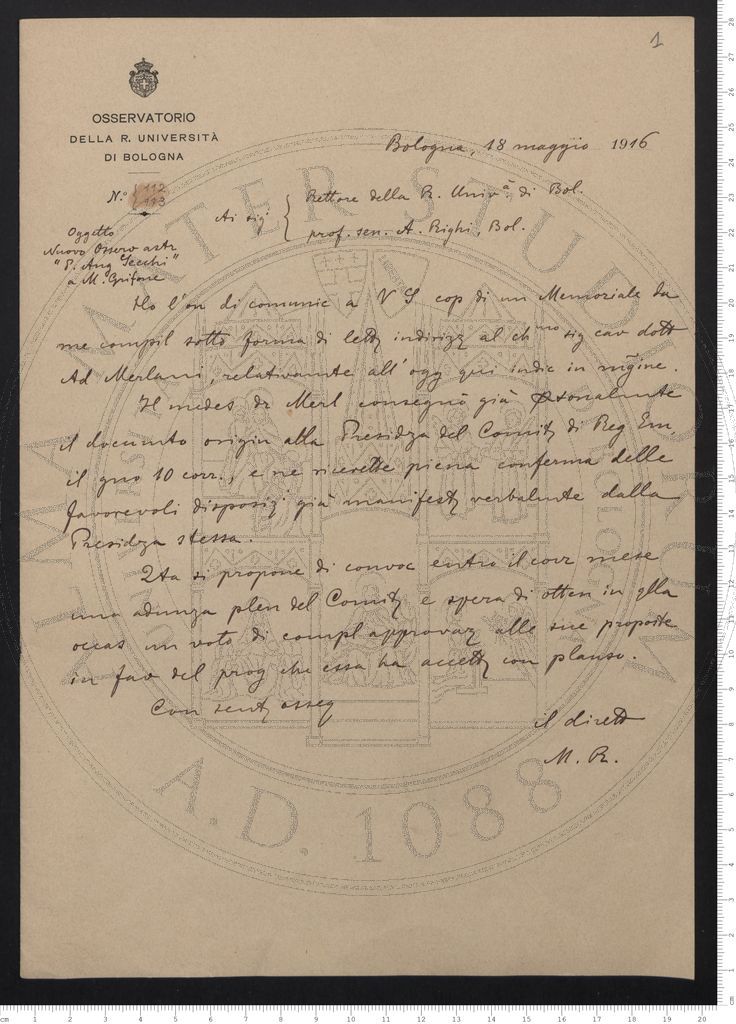 1
OSSERVATORIO
DELLA R. UNIVERSITÀ
DI BOLOGNA
Bologna, 18 maggio 1916
N.º { 112
113
Ai sigi { Rettore della R. Univà di Bol.
prof. sen. A. Righi, Bol.
Oggetto
Nuovo Osserv astr
"P. Ang Secchi"
a M. Grifone
Ho l'on di comunic a V S cop di un Memoriale da
me compil sotto forma di lett indirizz al chmo sig cav dott
Ad Merlani, relativamte all'ogg qui indic in mgine.
Il medes dr Merl consegnò già psonalmte
il documto origin alla Presidza del Comit di Reg Em.
il gno 10 corr., e ne ricevette piena conferma delle
favorevoli disposiz già manifest verbalmte dalla
Presidza stessa.
Qta si propone di convoc entro il corr mese
una adunza plen del Comit e spera di otten in qlla
occas un voto di compl approvaz alle sue proposte
in fav del prog che essa ha accett con plauso.
Con sent osseq
il dirett
M. R.
ALMA MATER STUDIORUM
A.D. 1088